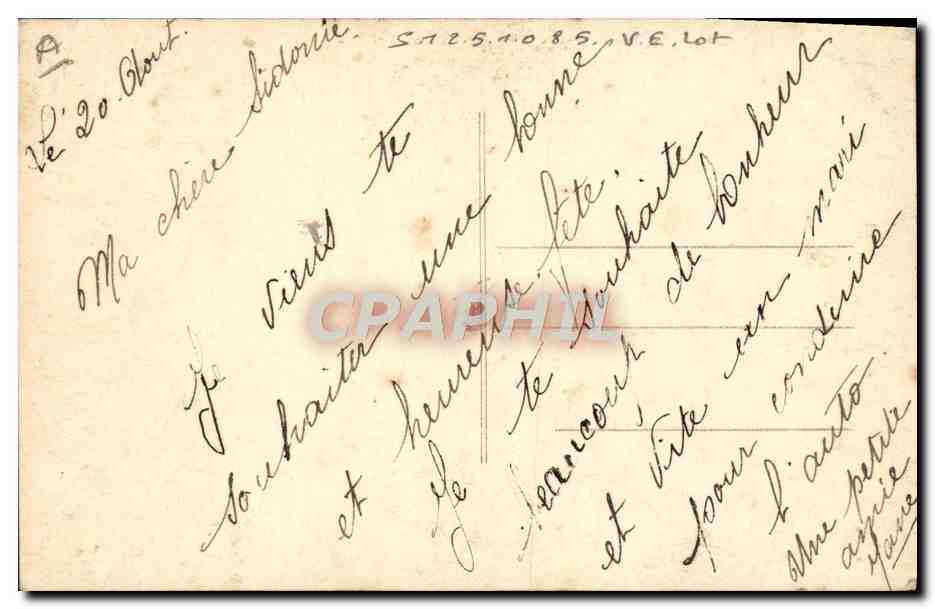 A
S1251085. V.E. Lot
Le 20 Aout.
Ma chère Sidonie.
Je viens te
souhaiter une bonne
et heureuse fête.
Je te souhaite
beaucoup de bonheur
et vite un mari
pour conduire
l'auto.
Une petite
amie
CPAPHIL